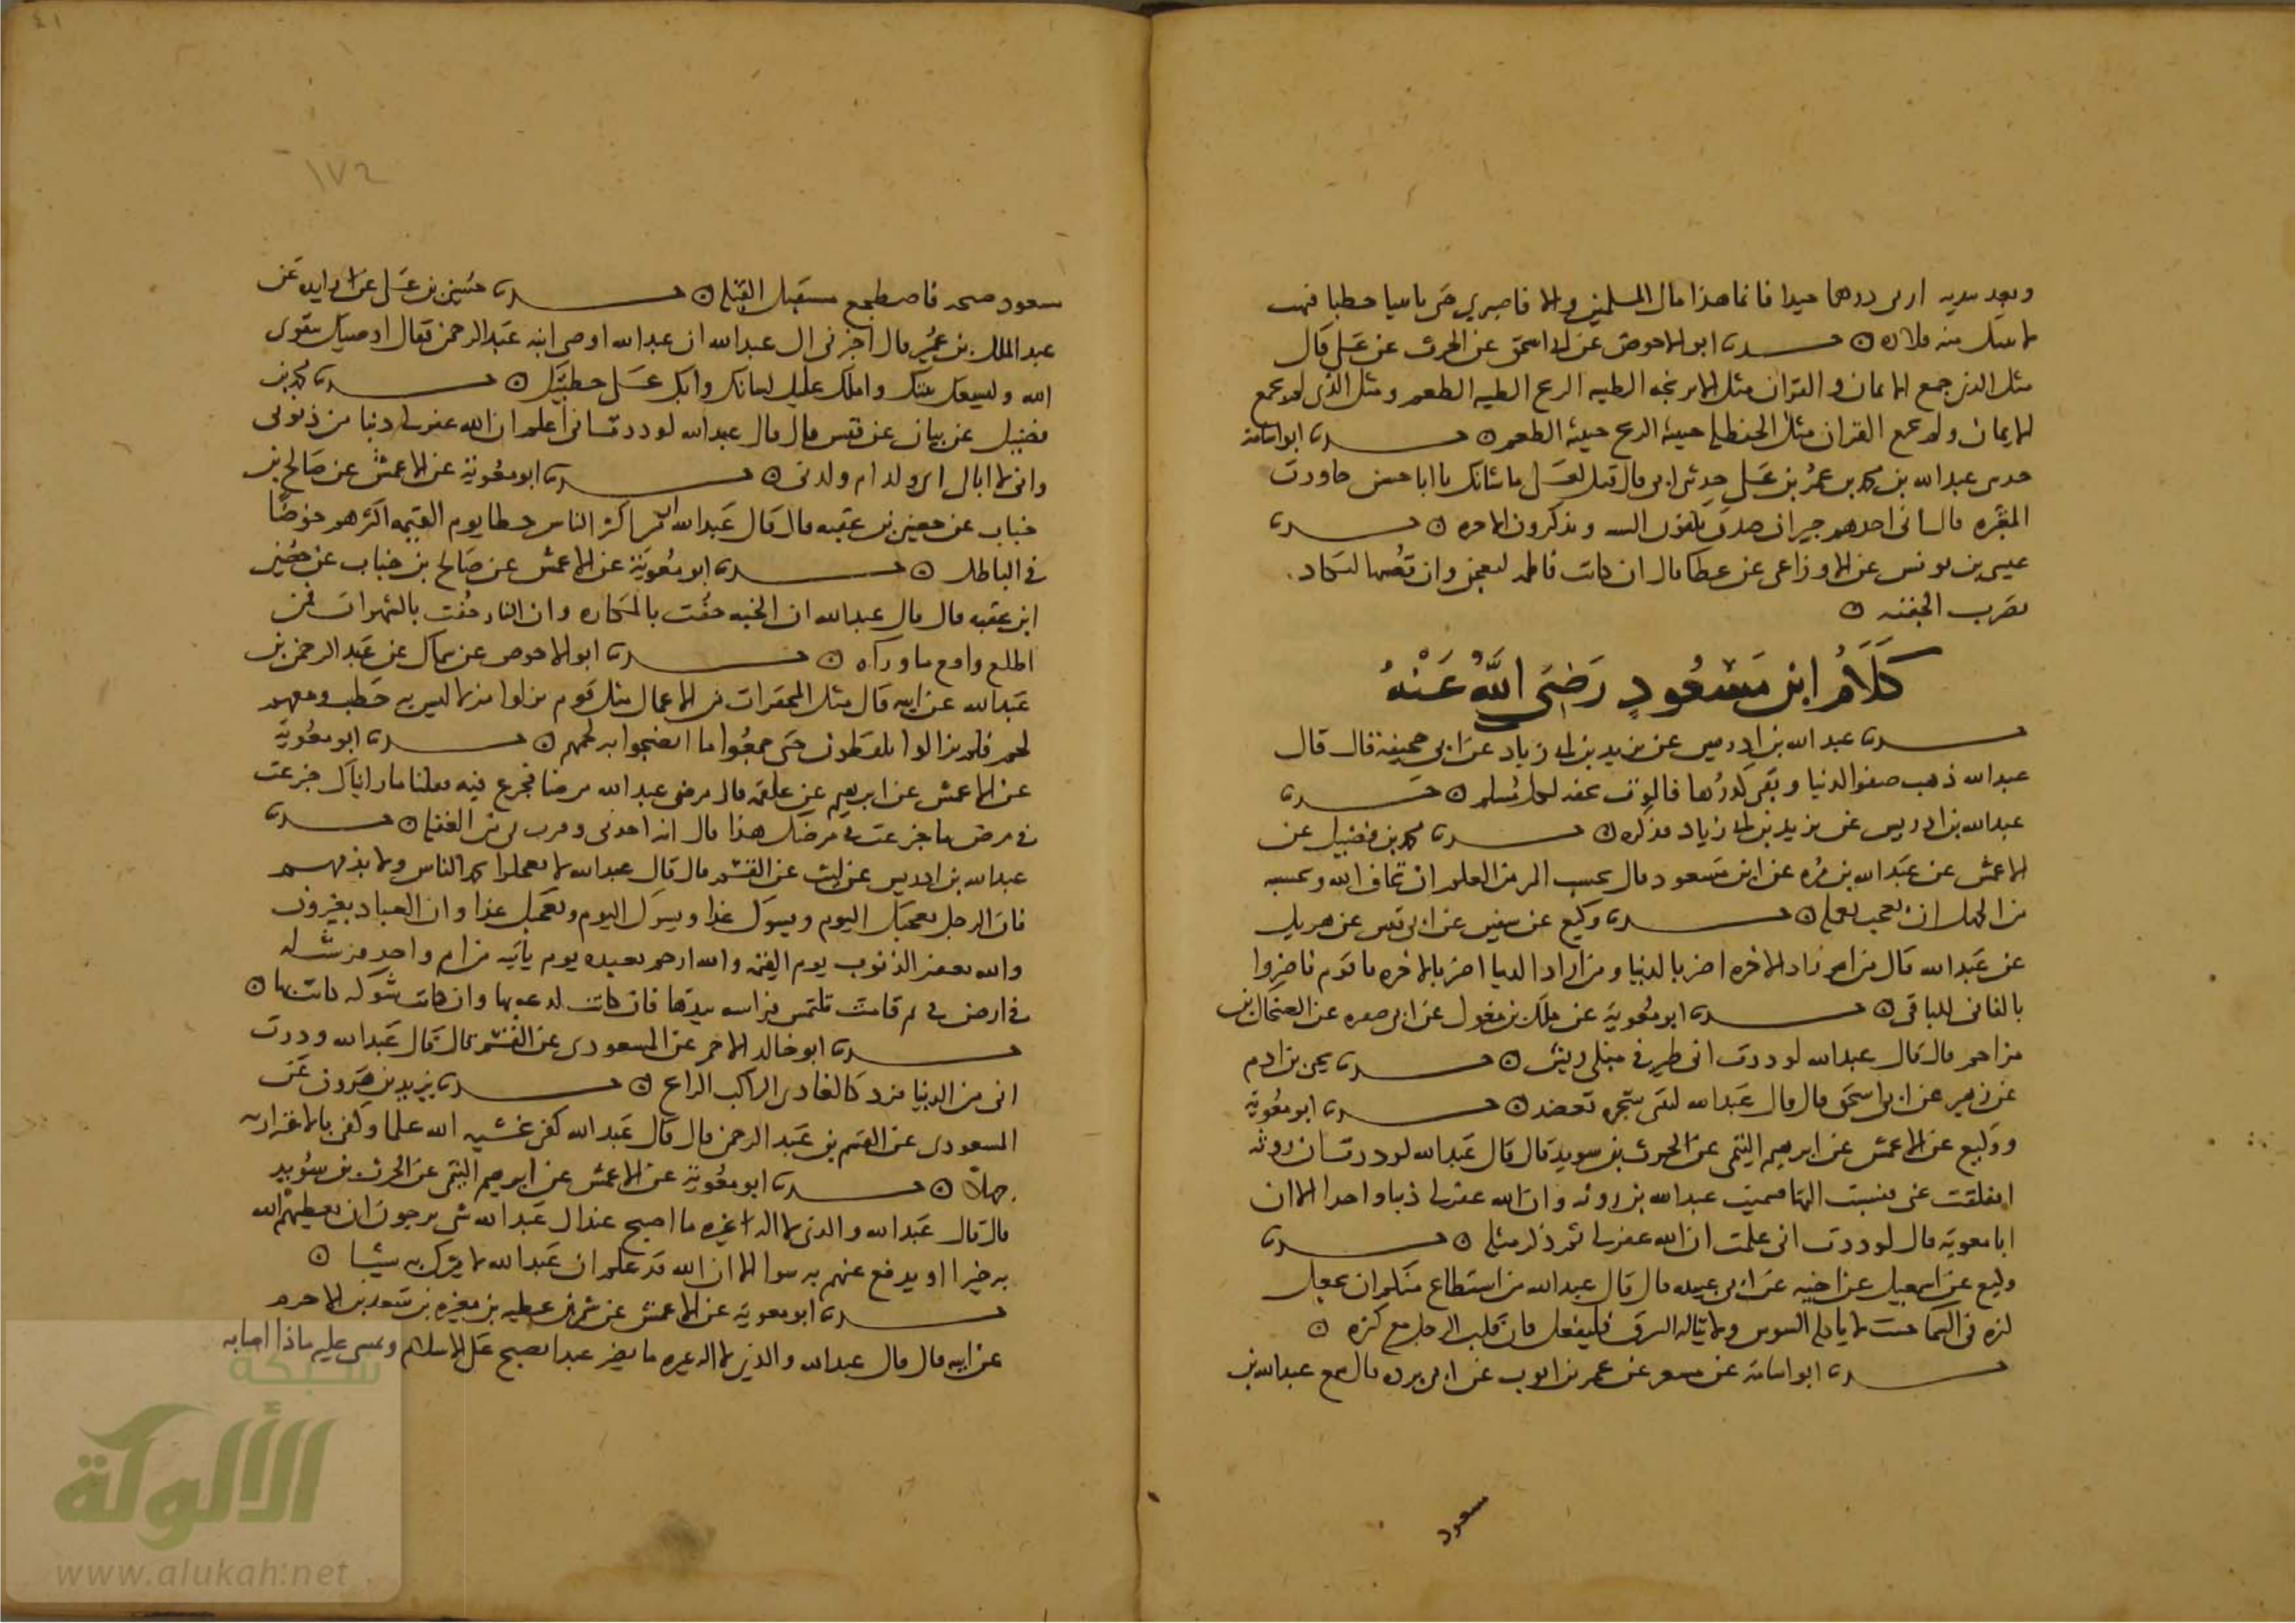 وبعد يديه اربى درهما جيدا فانما هذا مال المسلمين والا فاصبري حتى ياتينا حطبا فنهب
لا سل منه قلاده ه حدثنا ابو الاحوص عن ابي اسحق عن الحرث عن على قال
مثل الذي جمع الايمان والقران مثل الاترنجه الطيبه الريح الطيبه الطعم ومثل الذي لم يجمع
الايمان ولم يجمع القران مثل الحنظله خبيثه الريح خبيثه الطعم ه حدثنا ابو اسامة
حدثني عبد الله بن محمد بن عمر بن على حدثني ابي قال قيل لعلى ما شانك يا ابا حسن جاورت
المقبره قال اني اجدهم جيران صدق يكفون السيه ويذكرون الاخره ه حدثنا
عيسى بن يونس عن الاوزاعي عن عطا قال ان كانت فاطمه لتعجن وان قصتها لتكاد
تضرب الجفنه ه
كلام ابن مسعود رضى الله عنه
حدثنا عبد الله بن ادريس عن يزيد بن ابي زياد عن ابي جحيفة قال قال
عبد الله ذهب صفو الدنيا وبقى كدرها فالموت تحفه لكل مسلم ه حدثنا
عبد الله بن ادريس عن يزيد بن ابي زياد فذكره ه حدثنا محمد بن فضيل عن
الاعمش عن عبد الله بن مره عن ابن مسعود قال بحسب المرء من العلم ان يخاف الله وبحسبه
من الجهل ان يعجب بعمله ه حدثنا وكيع عن سفين عن ابي قيس عن هزيل
عن عبد الله قال من اراد الاخره اضر بالدنيا ومن اراد الدنيا اضر بالاخره يا قوم فاضروا
بالفانى للباقى ه حدثنا ابو معوية عن ملك بن مغول عن ابي صفره عن الضحاك بن
مزاحم قال قال عبد الله لوددت اني طير في منكبي ريش ه حدثنا يحيى بن ادم
عن زهير عن ابي اسحق قال قال عبد الله ليتني شجره تعضد ه حدثنا ابو معوية
ووكيع عن الاعمش عن ابرهيم التيمى عن الحرث بن سويد قال قال عبد الله لوددت ان روثه
انفلقت عنى فنسبت اليها فسميت عبد الله بن روثه وان الله غفر لى ذنبا واحدا الا ان
ابا معويه قال لوددت انى علمت ان الله غفر لى ثم ذكر مثله ه حدثنا
وكيع عن اسمعيل عن اخيه عن ابي عبيده قال قال عبد الله من استطاع منكم ان يجعل
كنزه في السما حيث لا ياكله السوس ولا يناله السرق فليفعل فان قلب الرجل مع كنزه ه
حدثنا ابو اسامة عن مسعر عن عمر بن ايوب عن ابي برده قال مع عبد الله بن
سعود
١٧٢
سعود صحد فاضطجع مستقبل القبله ه حدثنا حسين بن على عن زايده عن
عبد الملك بن عمير قال اخبرني ال عبد الله ان عبد الله اوصى ابنه عبد الرحمن فقال اوصيك بتقوى
الله وليسعك بيتك واملك عليك لسانك وابك على خطيتك ه حدثنا محمد بن
فضيل عن بيان عن قيس قال قال عبد الله لوددت انى اعلم ان الله غفر لى ذنبا من ذنوبى
وانى لا ابالى اى ولد ادم ولدنى ه حدثنا ابو معوية عن الاعمش عن صالح بن
خباب عن حصين بن عقبه قال قال عبد الله ان اكثر الناس خطا يوم القيمه اكثرهم خوضا
في الباطل ه حدثنا ابو معوية عن الاعمش عن صالح بن خباب عن حصين
ابن عقبه قال قال عبد الله ان الجنه حفت بالمكاره وان النار حفت بالشهوات فمن
اطلع واقع ما وراه ه حدثنا ابو الاحوص عن سماك عن عبد الرحمن بن
عبد الله عن ابيه قال مثل المحقرات من الاعمال مثل قوم نزلوا منزلا ليس به حطب ومعهم
لحم فلم يزالوا يلقطون حتى جمعوا ما انضجوا به لحمهم ه حدثنا ابو معوية
عن الاعمش عن ابرهيم عن علقمه قال مرض عبد الله مرضا فجزع فيه فقلنا ما رايناك جزعت
في مرض ما جزعت في مرضك هذا قال انه اخذنى وقرب بى من الغفله ه حدثنا
عبد الله بن ادريس عن ليث عن القسم قال قال عبد الله لا تعجلوا بحمد الناس ولا بذمهم
فان الرجل يعجبك اليوم ويسوك غدا ويسوك اليوم ويعجبك غدا وان العباد يغيرون
والله يغفر الذنوب يوم القيمه والله ارحم بعبده يوم ياتيه من ام واحد فرشت له
في ارض قى ثم قامت تلتمس فراشه بيدها فان كانت لدغه كانت بها وان كانت شوكه كانت بها ه
حدثنا ابو خالد الاحمر عن المسعودى عن القسم قال قال عبد الله وددت
انى من الدنيا فرد كالغادى الراكب الرايح ه حدثنا يزيد بن هرون عن
المسعودى عن القسم بن عبد الرحمن قال قال عبد الله كفى بخشيه الله علما وكفى بالاغترار به
جهلا ه حدثنا ابو معوية عن الاعمش عن ابرهيم التيمى عن الحرث بن سويد
قال قال عبد الله والذى لا اله غيره ما اصبح عند ال عبد الله شى يرجون ان يعطيهم الله
به خيرا او يدفع عنهم به سوا الا ان الله قد علم ان عبد الله لا يشرك به شيئا ه
حدثنا ابو معوية عن الاعمش عن شمر بن عطيه بن مغيره بن سعد بن الاخرم
عن ابيه قال قال عبد الله والذى لا اله غيره ما يضر عبدا يصبح على الاسلام ويمسى عليه ماذا اصابه
شبكة
الألوكة
www.alukah.net